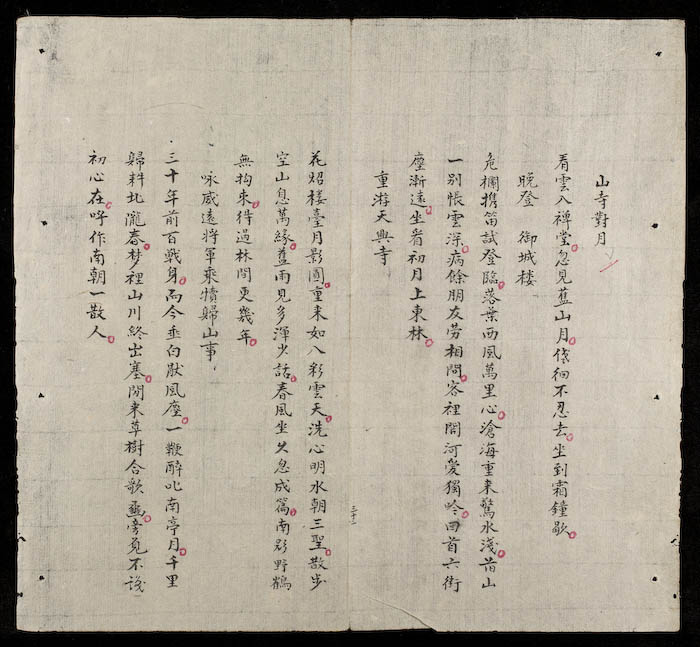 山寺對月
看雲入禪堂忽見舊山月徘徊不忍去坐到霜鐘歇
晚登 御城楼
危欄携笛試登臨落葉西風萬里心滄海重来驚水淺苔山
一別悵雲深病餘朋友劳相問客裡關河愛獨吟回首六街
塵漸遠坐看初月上東林
重游天興寺
花炤楼臺月影圓重来如入彩雲天洗心明水朝三聖散步
空山息萬緣舊雨見多渾少話春風坐久忽成篇南
野鶴
無拘束得過林間更幾年
咏威遠将軍乘犢歸山事
三十年前百戰身而今垂白厭風塵一鞭醉叱南亭月千里
歸耕北隴春梦裡山川終出塞閒来草樹合歌
旁
不
初心在呼作南朝一散人
三十二